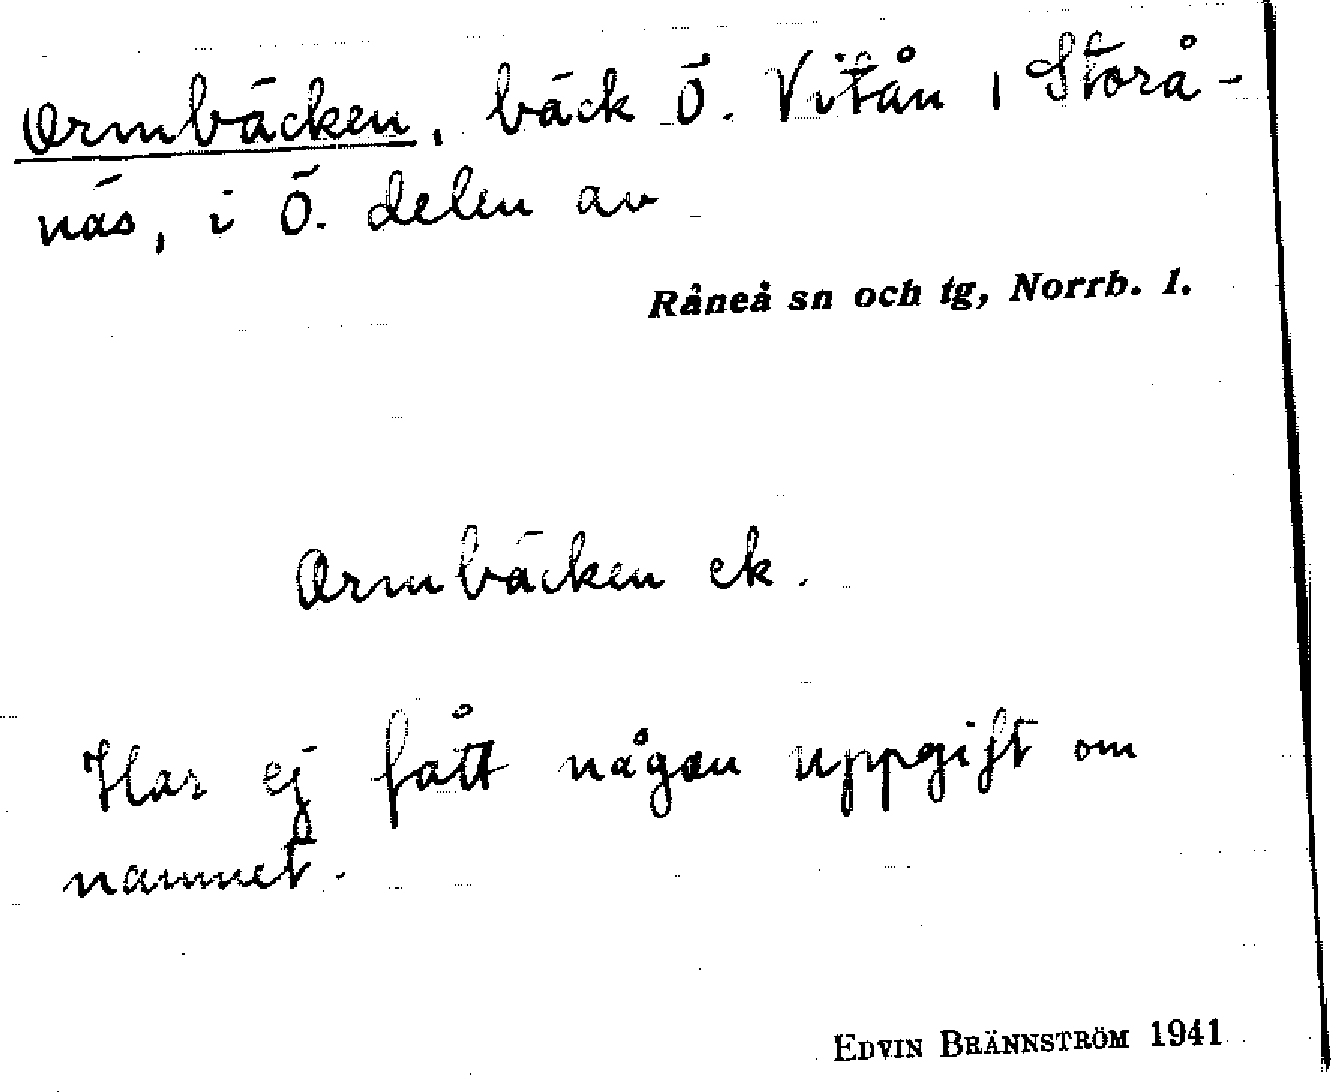 Ormbäcken, bäck Ö. Vitån i Storå-
näs, i Ö. delen av
Råneå sn och tg, Norrb. l.
Ormbäcken ek.
Har ej fått någon uppgift om
namnet.
EDVIN BRÄNNSTRÖM 1941